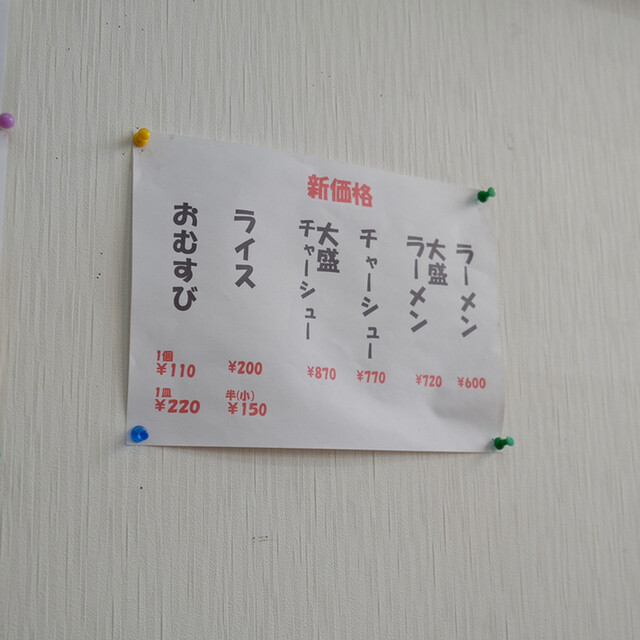 新価格
ラーメン
¥600
大盛
ラーメン
¥720
チャーシュー
¥770
大盛
チャーシュー
¥870
ライス
¥200
半(小)
¥150
おむすび
1個
¥110
1皿
¥220